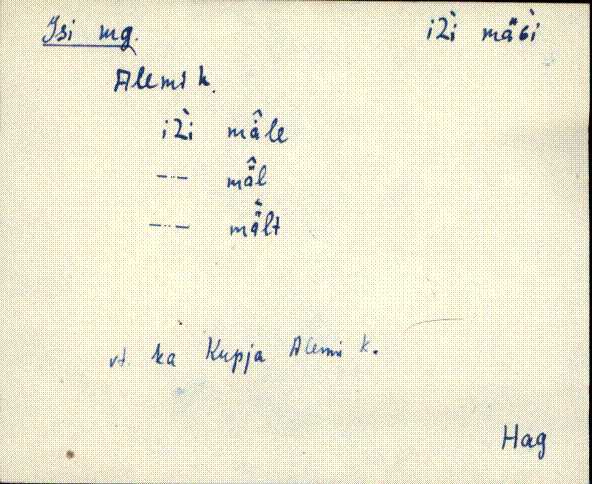 Isi mg. iƷ̀i mäɢ̀i
Alemi k.
iƷ̀i mä̂le
—··— mä̂l
—··— mä̂lt
vt. ka Kupja Alemi k.
Hag